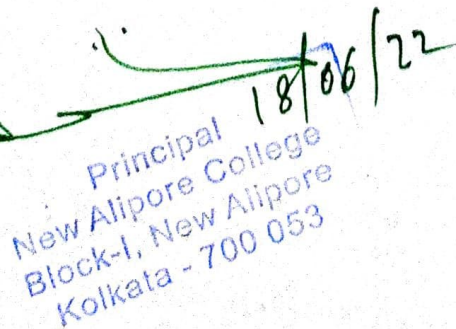 18/06/22
Principal
New Alipore College
Block-I, New Alipore
Kolkata - 700 053